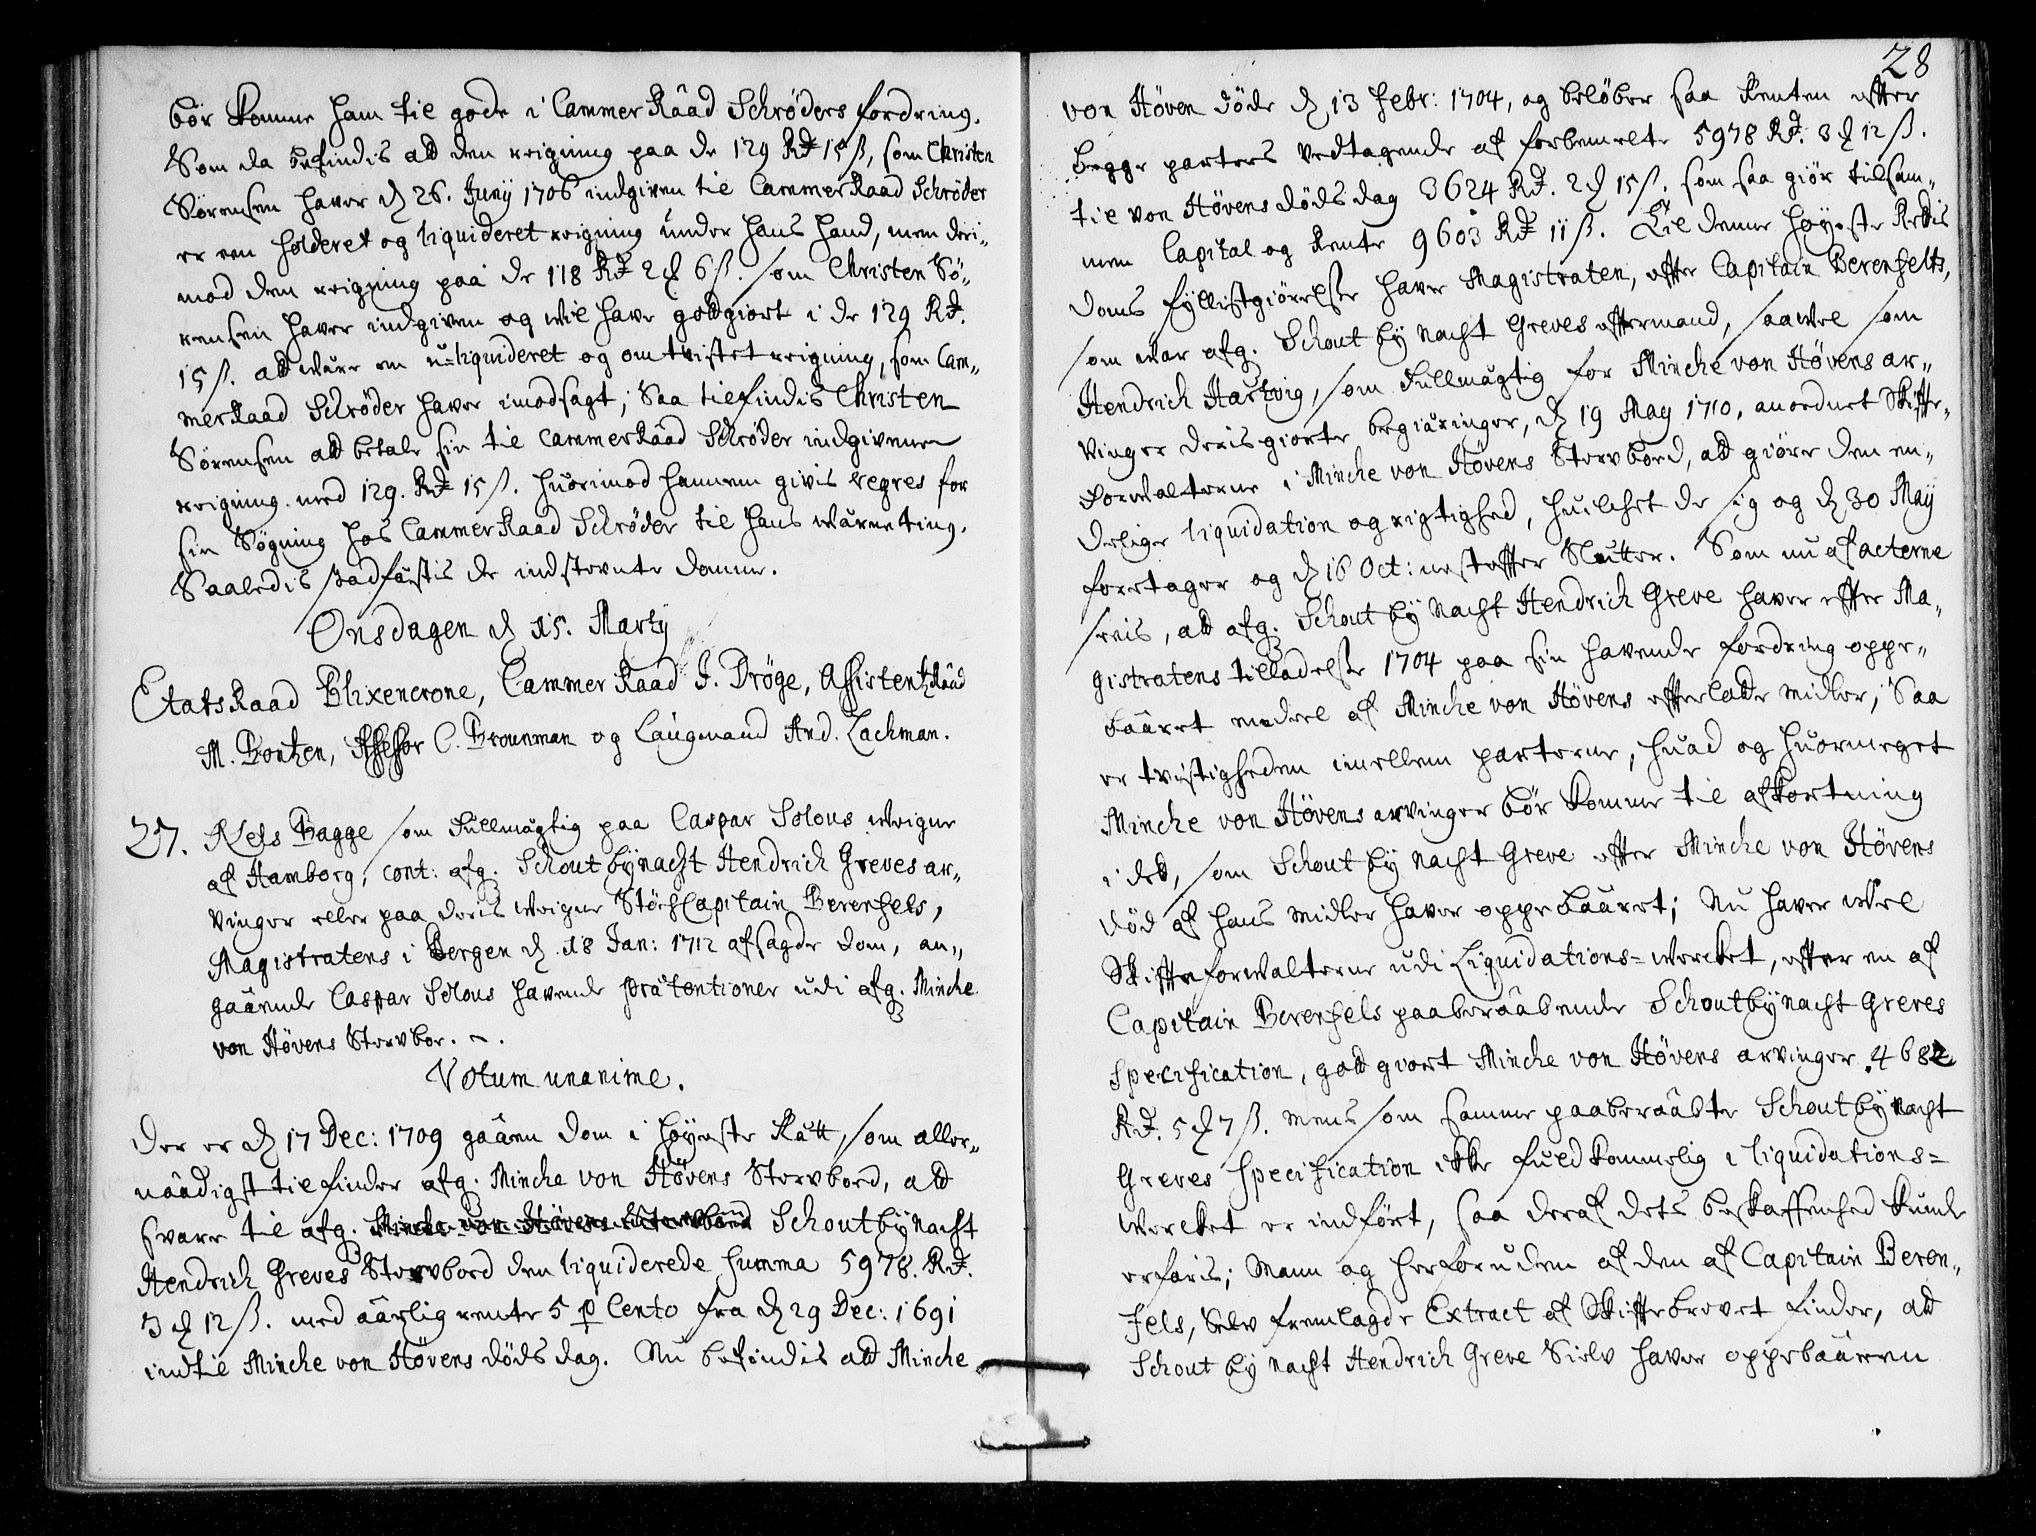 bör komme ham til gode i Cammer Raad Schrøders fordring.
Som da befindis att den reigning paa de 129 Rd 15 ß, som Christen
Sørensen haver d 26. Juny 1706 indgiven til Cammer Raad Schrøder
er en holderet og liquideret reigning under hans haand, men deri„
mod den reigning paa de 118 Rd 2 ₰ 6 ß. som Christen Sø„
rensen haver indgiven og wil have godtgiort i de 129 Rd.
15 ß. att være en u-liquideret og omtvistet reigning, som Cam„
merRaad Schrøder haver imodsagt; Saa tilfindis Christen
Sørensen att betale sin til CammerRaad Schrøder indgivene
reigning med 129. Rd 15 ß. huorimod hannem givis regres for
sin Søgning hos CammerRaad Schrøder til hans wærneting.
Saaledis stadfæstis de indstevnte domme.
Onsdagen d 15. Marty
EtatsRaad Blixencrone, Cammer Raad J. Dröge, AssistentzRaad
M. Bontzen, Assessor C. Brounman og Laugmand And. Lachman.
27. Niels Bagge som Fullmægtig paa Caspar Solous weigne
af Hamborg, cont: afg. Schoutbynacht Hendrich Greves ar„
vinger eller paa deris weigne StöchCapitain Berenfels,
Magistratens i Bergen d. 18 Jan: 1712 afsagde dom, an„
gaaende Caspar Solous havende prætentioner udi afg. Minche
von Hövens Sterboe.
Votum unanime.
Der er d 17 Dec: 1709 gaaen dom i høyeste Rætt, som aller„
naadigst tilfinder afg. Minche von Hövens Stervboed, att
svare til afg. Minche von Hövens Stervboed Schoutbynacht
Hendrich Greves Stervboed den liquiderede summa 5978. Rd.
3 ₰ 12 ß. med aarlig rente 5 p Cento fra d 29 Dec: 1691
indtil Minche von Hövens döds dag. Nu befindis att Minche
28
von Höven döde d 13 Febr: 1704, og beløber saa Renten efter
begge parters vedtagende af forbemelte 5978 Rd. 3 ₰ 12 ß.
til von Hövens döds dag 3624 Rd. 2 ₰ 15 ß. som saa giør tilsam„
men Capital og Rente 9603 Rd 11 ß. Til denne høyeste Rettis
doms fyllistgiörelse haver Magistraten, efter Capitain Berenfelts,
som war afg. Schout by nacht Greves eftermand, saawel som
Hendrich Hartvig, som Fullmægtig for Minche von Hövens ar„
vinger deris giorte begiæringer, d 19 May 1710, anordnet Skifte„
forwalterne i Minche von Hövens Stervboed, att giöre den en„
delige liquidation og rigtighed, huilchet de sig og d 30 May
foretager og d 16 Oct: nestefter Slutter. Som nu af acterne
sees, att afg. Schout by nacht Hendrich Greve haver efter Ma„
gistratens tilladelse 1704 paa sin havende fordring oppe„
baaret endeel af Minche von Hövens efterlatte midler, Saa
er tvistigheden imellem parterne, huad og huormeget
Minche von Hövens arvinger bör komme til afkortning
i det, som Schout by nacht Greve efter Minche von Hövens
död af hans midler haver oppebaaret; Nu haver well
Skifteforwalterne udi Liquidations-wercket, efter en af
Capitain Berenfels paaberaabende Schoutbynacht Greves
Specification, godtgiort Minche von Hövens arvinger 4682
Rd. 5 ₰ 7 ß. Mens som samme paaberaabte Schoutbynacht
Greves Specification ikke fuldkommelig i liquidations-
Wercket er indført, saa deraf dets beskaffenhed kunde
erfaris; Mann og herforuden af den af Capitain Beren„
fels, Selv fremlagde Extract af Skiftebrevet finder, att
Schout by nacht Hendrich Greve Sielv haver oppebaaren